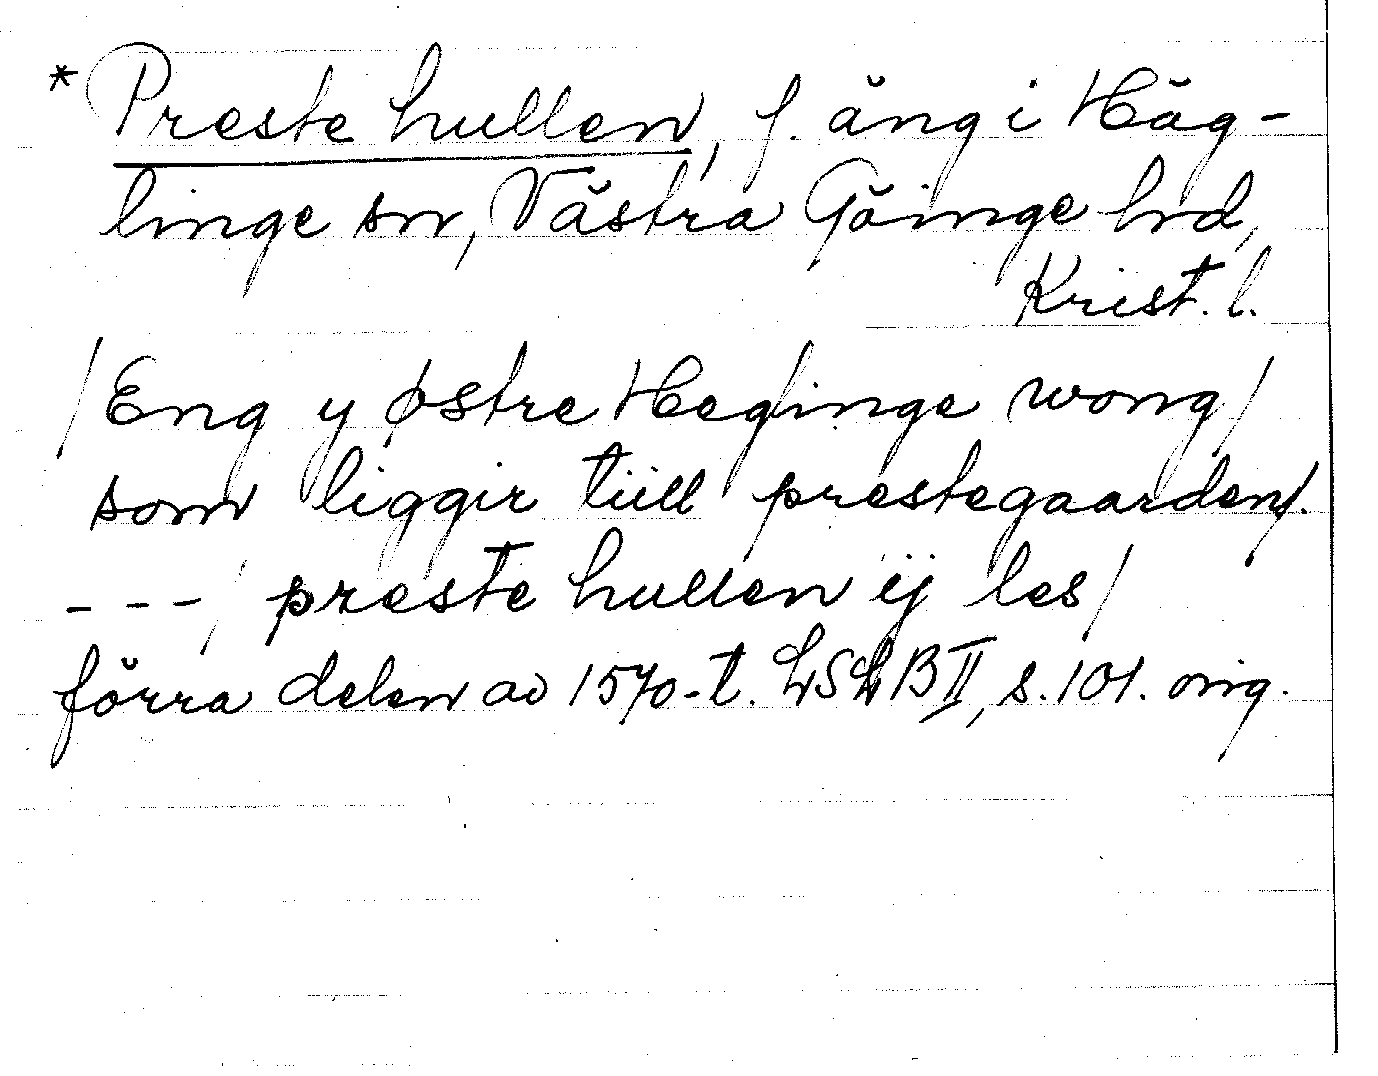 * Preste hullen, f. äng i Häg-
linge sn, Västra Göinge hd,
Krist. l.
/Eng y østre Heglinge wong/
som liggir tiill prestegaarden/.
- - -/ preste hullen ÿ les/
förra delen av 1570-t. LSLB II, s. 101. orig.